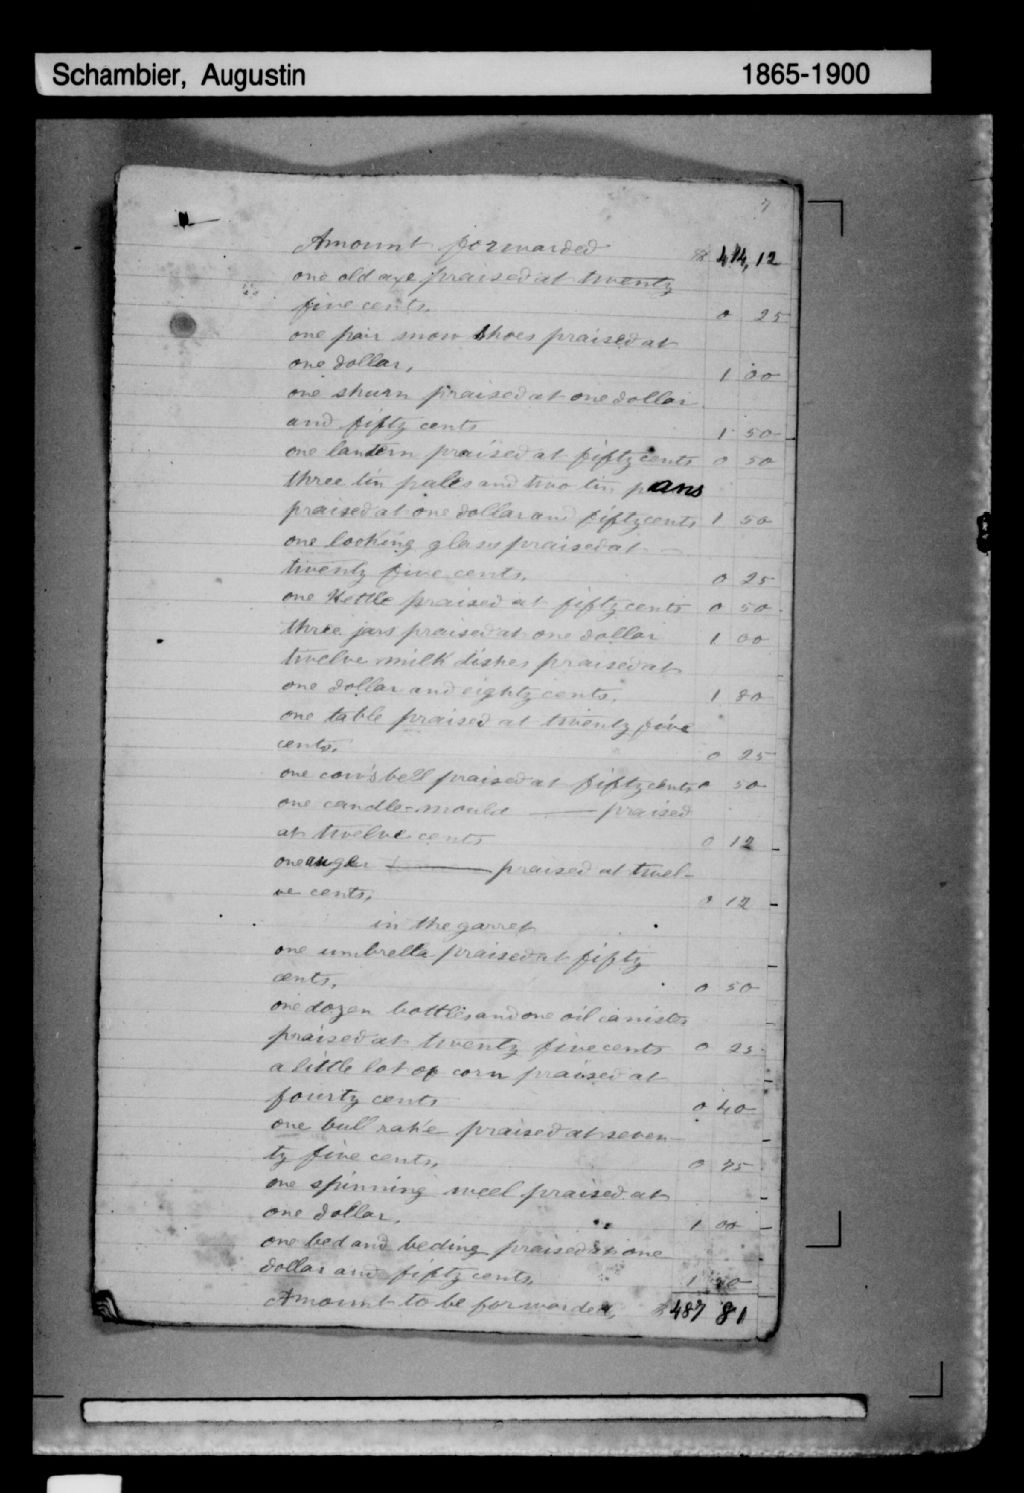 Schambier, Augustin 1865-1900
7
Amount forwarded $ 474,12
one old axe praised at twenty
five cents, 0 25
one pair snow shoes praised at
one dollar, 1 00
one shurn praised at one dollar
and fifty cents 1 50
one lantern praised at fifty cents 0 50
three tin pales and two tin pans
praised at one dollar and fifty cents 1 50
one looking glass praised at
twenty five cents, 0 25
one Kettle praised at fifty cents 0 50
three jars praised at one dollar 1 00
twelve milk dishes praised at
one dollar and eighty cents, 1 80
one table praised at twenty five
cents, 0 25
one cow's bell praised at fifty cents 0 50
one candle-mould — praised
at twelve cents 0 12
one auger — praised at twel-
ve cents, 0 12
in the garret
one umbrella praised at fifty
cents, 0 50
one dozen bottles and one oil canister
praised at twenty five cents 0 25
a little lot of corn praised at
fourty cents 0 40
one bull rake praised at seven-
ty five cents, 0 75
one spinning weel praised at
one dollar, 1 00
one bed and beding praised at one
dollar and fifty cents, 1 50
Amount to be forwarded, $ 487 81